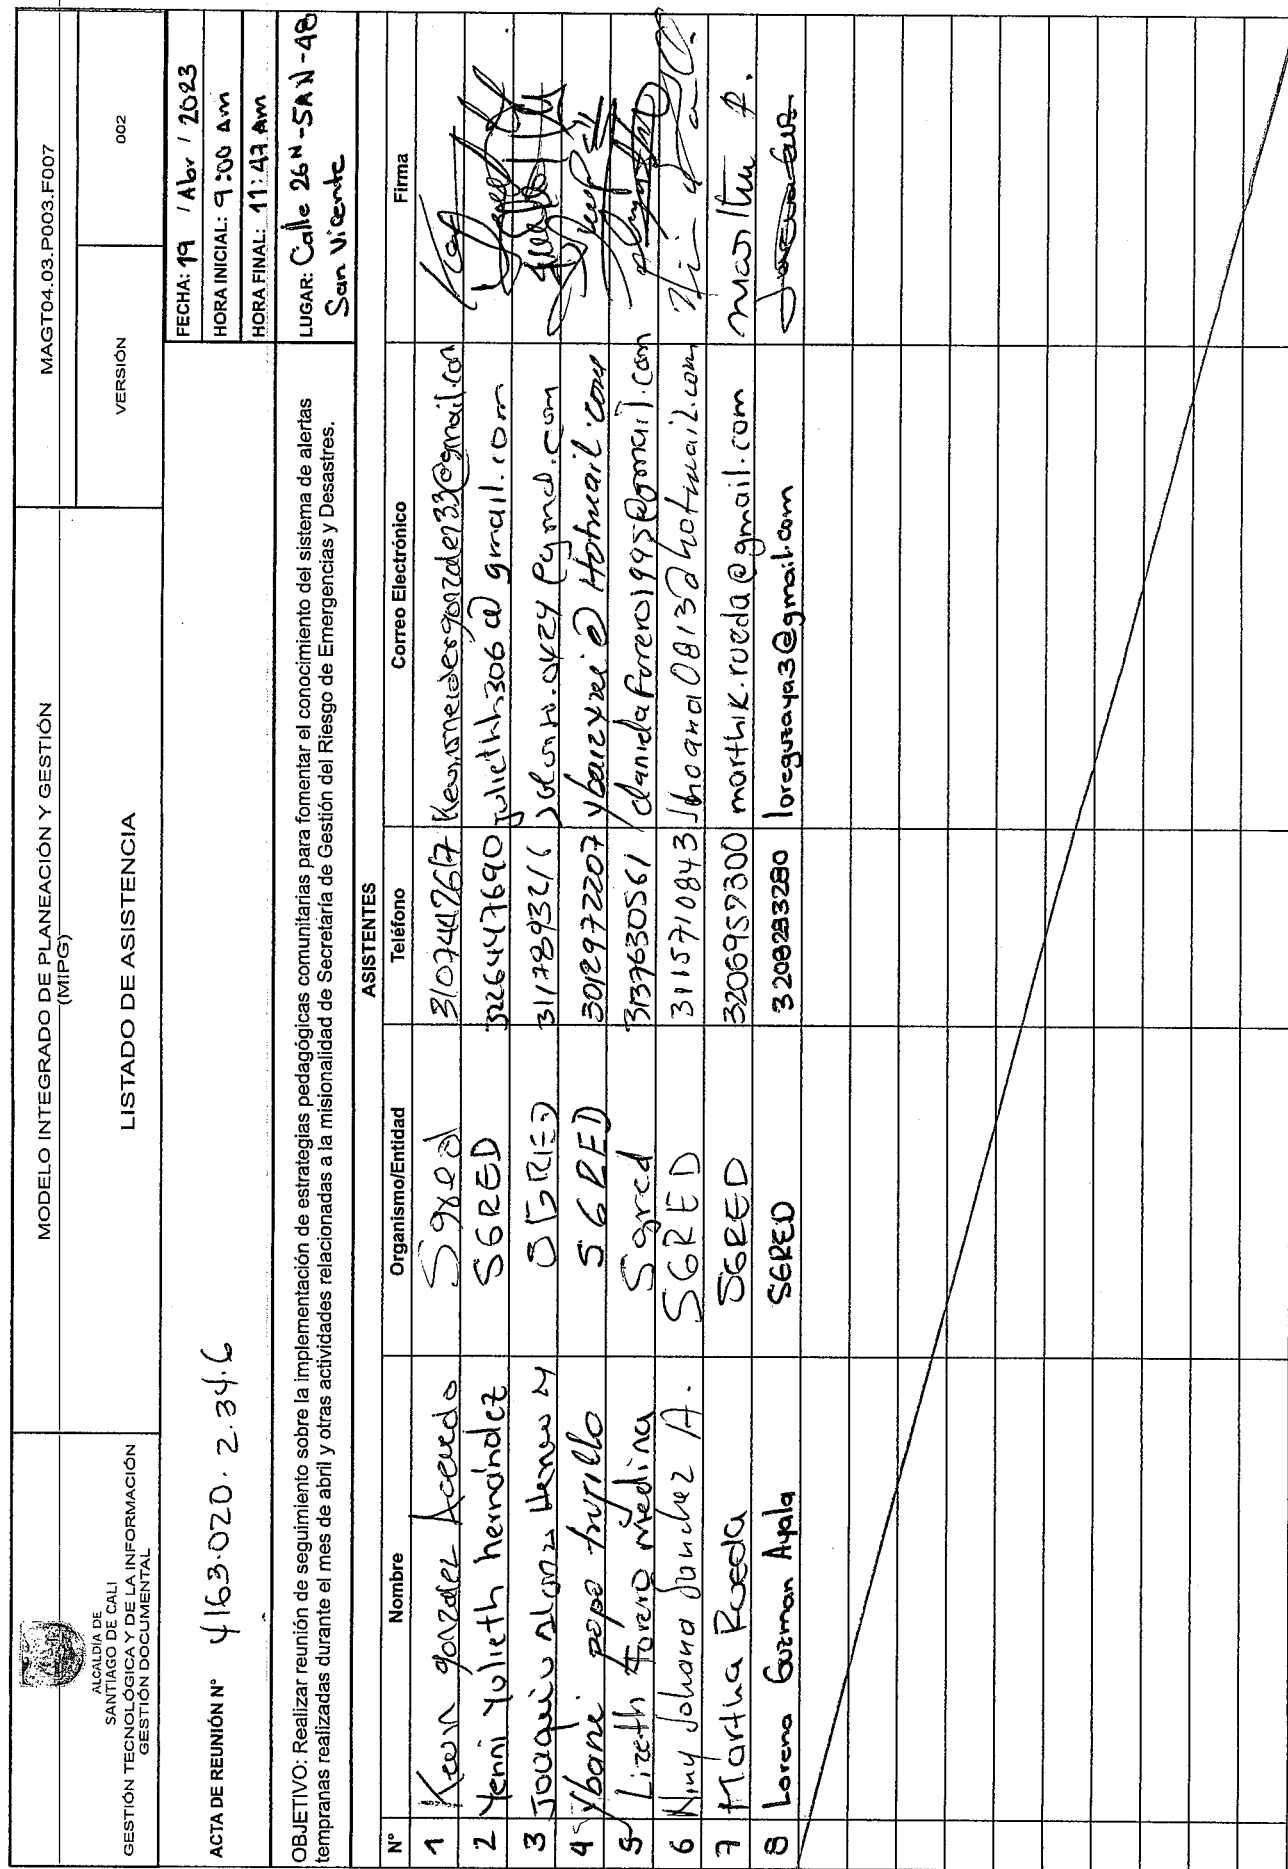 ALCALDÍA DE
SANTIAGO DE CALI
GESTIÓN TECNOLÓGICA Y DE LA INFORMACIÓN
GESTIÓN DOCUMENTAL
MODELO INTEGRADO DE PLANEACIÓN Y GESTIÓN
(MIPG)
LISTADO DE ASISTENCIA
MAGT04.03.P003.F007
VERSIÓN 002
ACTA DE REUNIÓN N° 4163.020.2.34.6
FECHA: 19 / Abr / 2023
HORA INICIAL: 9:00 am
HORA FINAL: 11:47 am
OBJETIVO: Realizar reunión de seguimiento sobre la implementación de estrategias pedagógicas comunitarias para fomentar el conocimiento del sistema de alertas
tempranas realizadas durante el mes de abril y otras actividades relacionadas a la misionalidad de Secretaría de Gestión del Riesgo de Emergencias y Desastres.
LUGAR: Calle 26N-5AN-48
San Vicente
ASISTENTES
N° Nombre Organismo/Entidad Teléfono Correo Electrónico Firma
1 Kevin gonzalez Acevedo Sgred
2 Yenni Yulieth hernández SGRED 3226447690 yuliethh306@gmail.com
3 Joaquin SGRED 3117893216
4 Ybane pope trujillo SGRED 3012972207
5 Lizeth Forero medina Sgred 3137630561
6 Johana Sanchez A. SGRED 3115710843
7 Martha Rueda SGRED 3206957300 marthik.rueda@gmail.com Martha R.
8 Lorena Guzman Ayala SGRED 3208283280 loreguzaya3@gmail.com